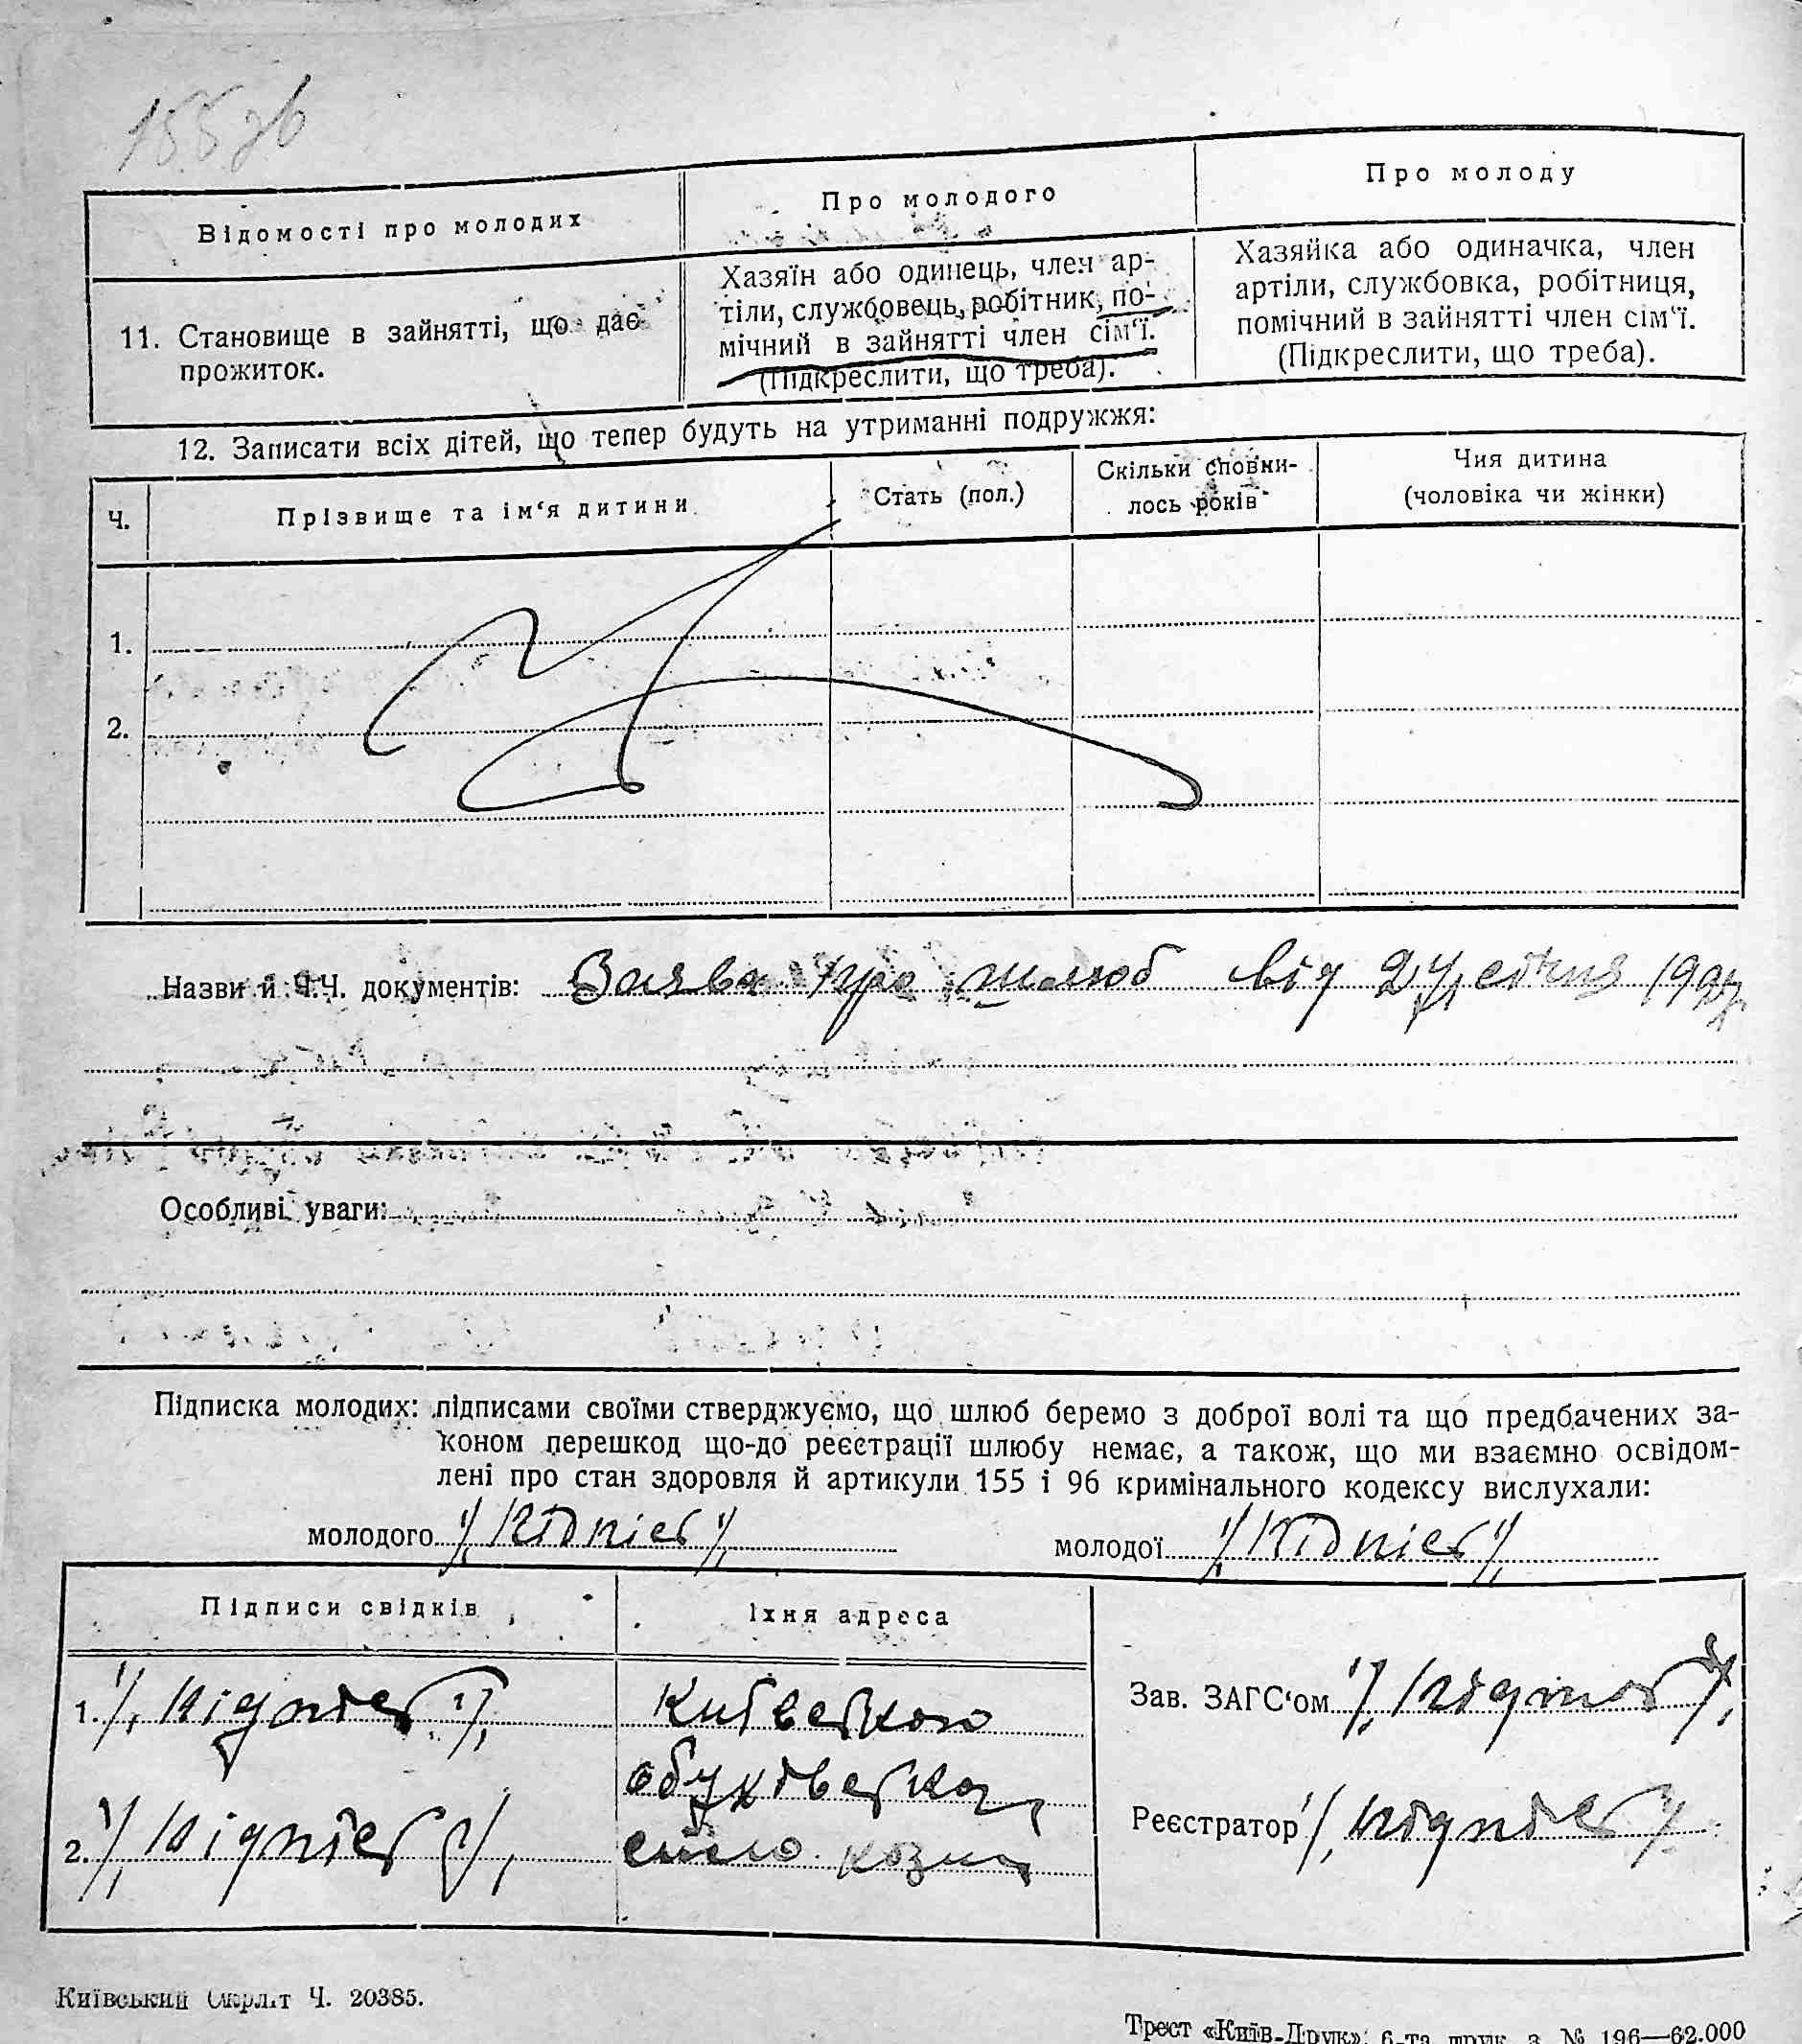 155 зв
Відомості про молодих
Про молодого
Про молоду
11. Становище в зайнятті, що дає
прожиток.
Хазяїн або одинець, член ар-
тіли, службовець, робітник, по-
мічний в зайнятті член сім'ї.
(Підкреслити, що треба).
Хазяйка або одиначка, член
артіли, службовка, робітниця,
помічний в зайнятті член сім'ї.
(Підкреслити, що треба).
12. Записати всіх дітей, що тепер будуть на утриманні подружжя:
Ч.
Прізвище та ім'я дитини
Стать (пол.)
Скільки сповни-
лось років
Чия дитина
(чоловіка чи жінки)
1.
2.
Назви й Ч.Ч. документів: Заява про шлюб від 24 січня
Особливі уваги:
Підписка молодих: підписами своїми стверджуємо, що шлюб беремо з доброї волі та що предбачених за-
коном перешкод що-до реєстрації шлюбу немає, а також, що ми взаємно освідом-
лені про стан здоровля й артикули 155 і 96 кримінального кодексу вислухали:
молодого /Підпис/
молодої /Підпис/
Підписи свідків
Їхня адреса
1. /Підпис/
Київського
Обухівськ
2. /Підпис/
село Козин
Зав. ЗАГС'ом /Підпис/
Реєстратор /Підпис/
Київський Окрліт Ч. 20385.
Трест «Київ-Друк», 6-та друк. з. № 196—62.000